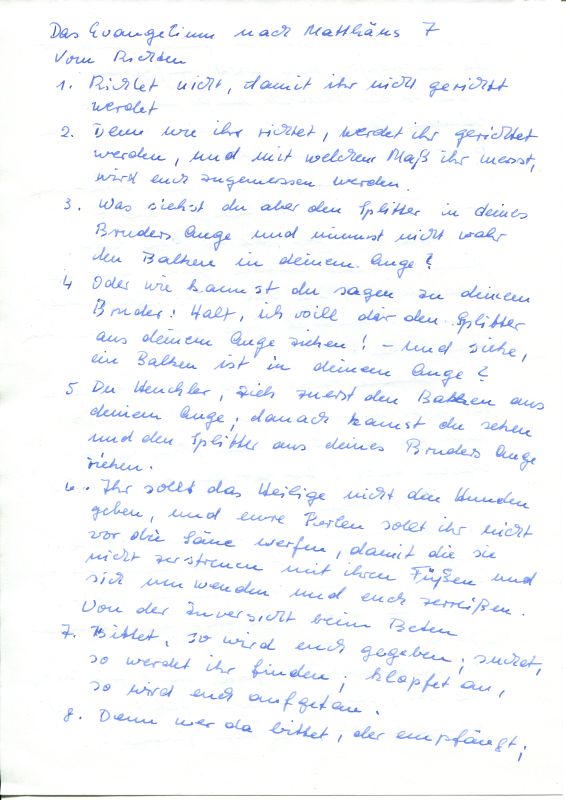 Das Evangelium nach Matthäus 7
Vom Richten
1. Richtet nicht, damit ihr nicht gerichtet
werdet
2. Denn wie ihr richtet, werdet ihr gerichtet
werden, und mit welchem Maß ihr messt,
wird euch zugemessen werden.
3. Was siehst du aber den Splitter in deines
Bruders Auge und nimmst nicht wahr
den Balken in deinem Auge?
4 Oder wie kannst du sagen zu deinem
Bruder: Halt, ich will dir den Splitter
aus deinem Auge ziehen! - und siehe,
ein Balken ist in deinem Auge?
5 Du Heuchler, zieh zuerst den Balken aus
deinem Auge; danach kannst du sehen
und den Splitter aus deines Bruders Auge
ziehen.
6. Ihr sollt das Heilige nicht den Hunden
geben, und eure Perlen sollt ihr nicht
vor die Säue werfen, damit die sie
nicht zerstreuen mit ihren Füßen und
sich umwenden und euch zerreißen.
Von der Zuversicht beim Beten
7. Bittet, so wird euch gegeben; suchet,
so werdet ihr finden; klopfet an,
so wird euch aufgetan.
8. Denn wer da bittet, der empfängt;